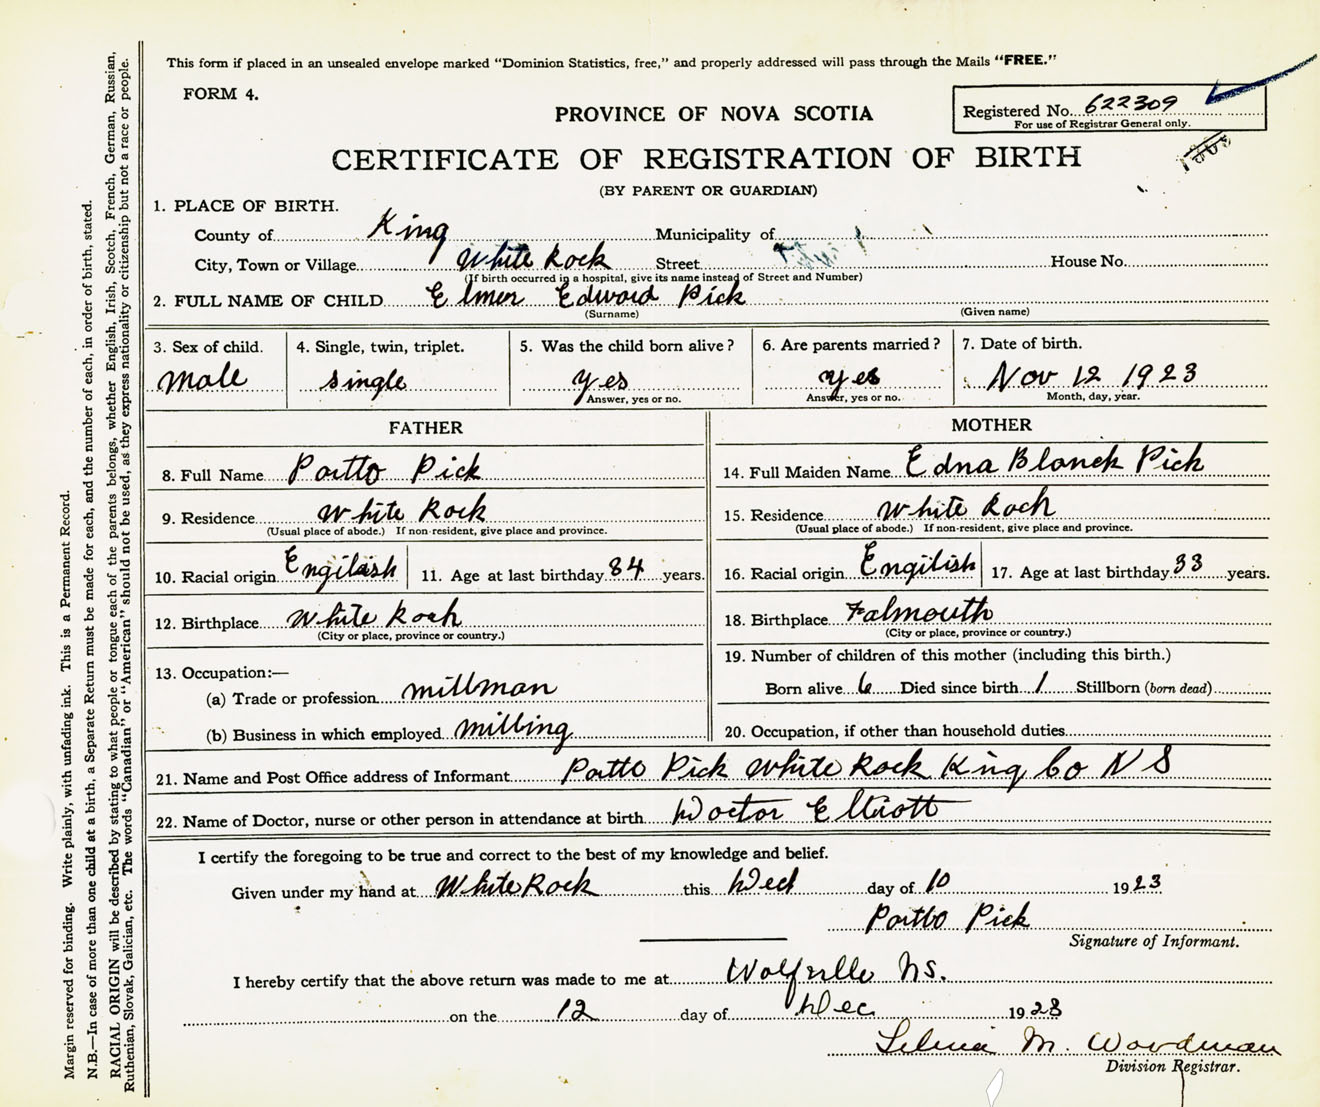 This form if placed in an unsealed envelope marked "Dominion Statistics, free," and properly addressed will pass through the Mails "FREE."
FORM 4.
Registered No. 622309
For use of Registrar General only.
PROVINCE OF NOVA SCOTIA
CERTIFICATE OF REGISTRATION OF BIRTH
(BY PARENT OR GUARDIAN)
1. PLACE OF BIRTH.
County of King Municipality of
City, Town or Village White Rock Street House No.
(If birth occurred in a hospital, give its name instead of Street and Number)
2. FULL NAME OF CHILD Elmer Edward Pick
(Surname) (Given name)
3. Sex of child. 4. Single, twin, triplet. 5. Was the child born alive? 6. Are parents married? 7. Date of birth.
Male single yes yes Nov 12 1923
Answer, yes or no. Answer, yes or no. Month, day, year.
FATHER MOTHER
8. Full Name Portto Pick 14. Full Maiden Name Edna Blanck Pick
9. Residence White Rock 15. Residence White Rock
(Usual place of abode.) If non-resident, give place and province. (Usual place of abode.) If non-resident, give place and province.
10. Racial origin Engilish 11. Age at last birthday 34 years. 16. Racial origin Engilish 17. Age at last birthday 33 years.
12. Birthplace White Rock 18. Birthplace Falmouth
(City or place, province or country.) (City or place, province or country.)
13. Occupation:— 19. Number of children of this mother (including this birth.)
(a) Trade or profession millman Born alive 6 Died since birth 1 Stillborn (born dead)
(b) Business in which employed milling 20. Occupation, if other than household duties
21. Name and Post Office address of Informant Portto Pick White Rock King Co N S
22. Name of Doctor, nurse or other person in attendance at birth Doctor Elliott
I certify the foregoing to be true and correct to the best of my knowledge and belief.
Given under my hand at White Rock this Dec day of 10 1923
Portto Pick
Signature of Informant.
I hereby certify that the above return was made to me at Wolfville N.S.
on the 12 day of Dec 1923
M. Woodman
Division Registrar.
Margin reserved for binding. Write plainly, with unfading ink. This is a Permanent Record.
N.B.—In case of more than one child at a birth, a Separate Return must be made for each, and the number of each, in order of birth, stated.
RACIAL ORIGIN will be described by stating to what people or tongue each of the parents belongs, whether English, Irish, Scotch, French, German, Russian,
Ruthenian, Slovak, Galician, etc. The words "Canadian" or "American" should not be used, as they express nationality or citizenship but not a race or people.